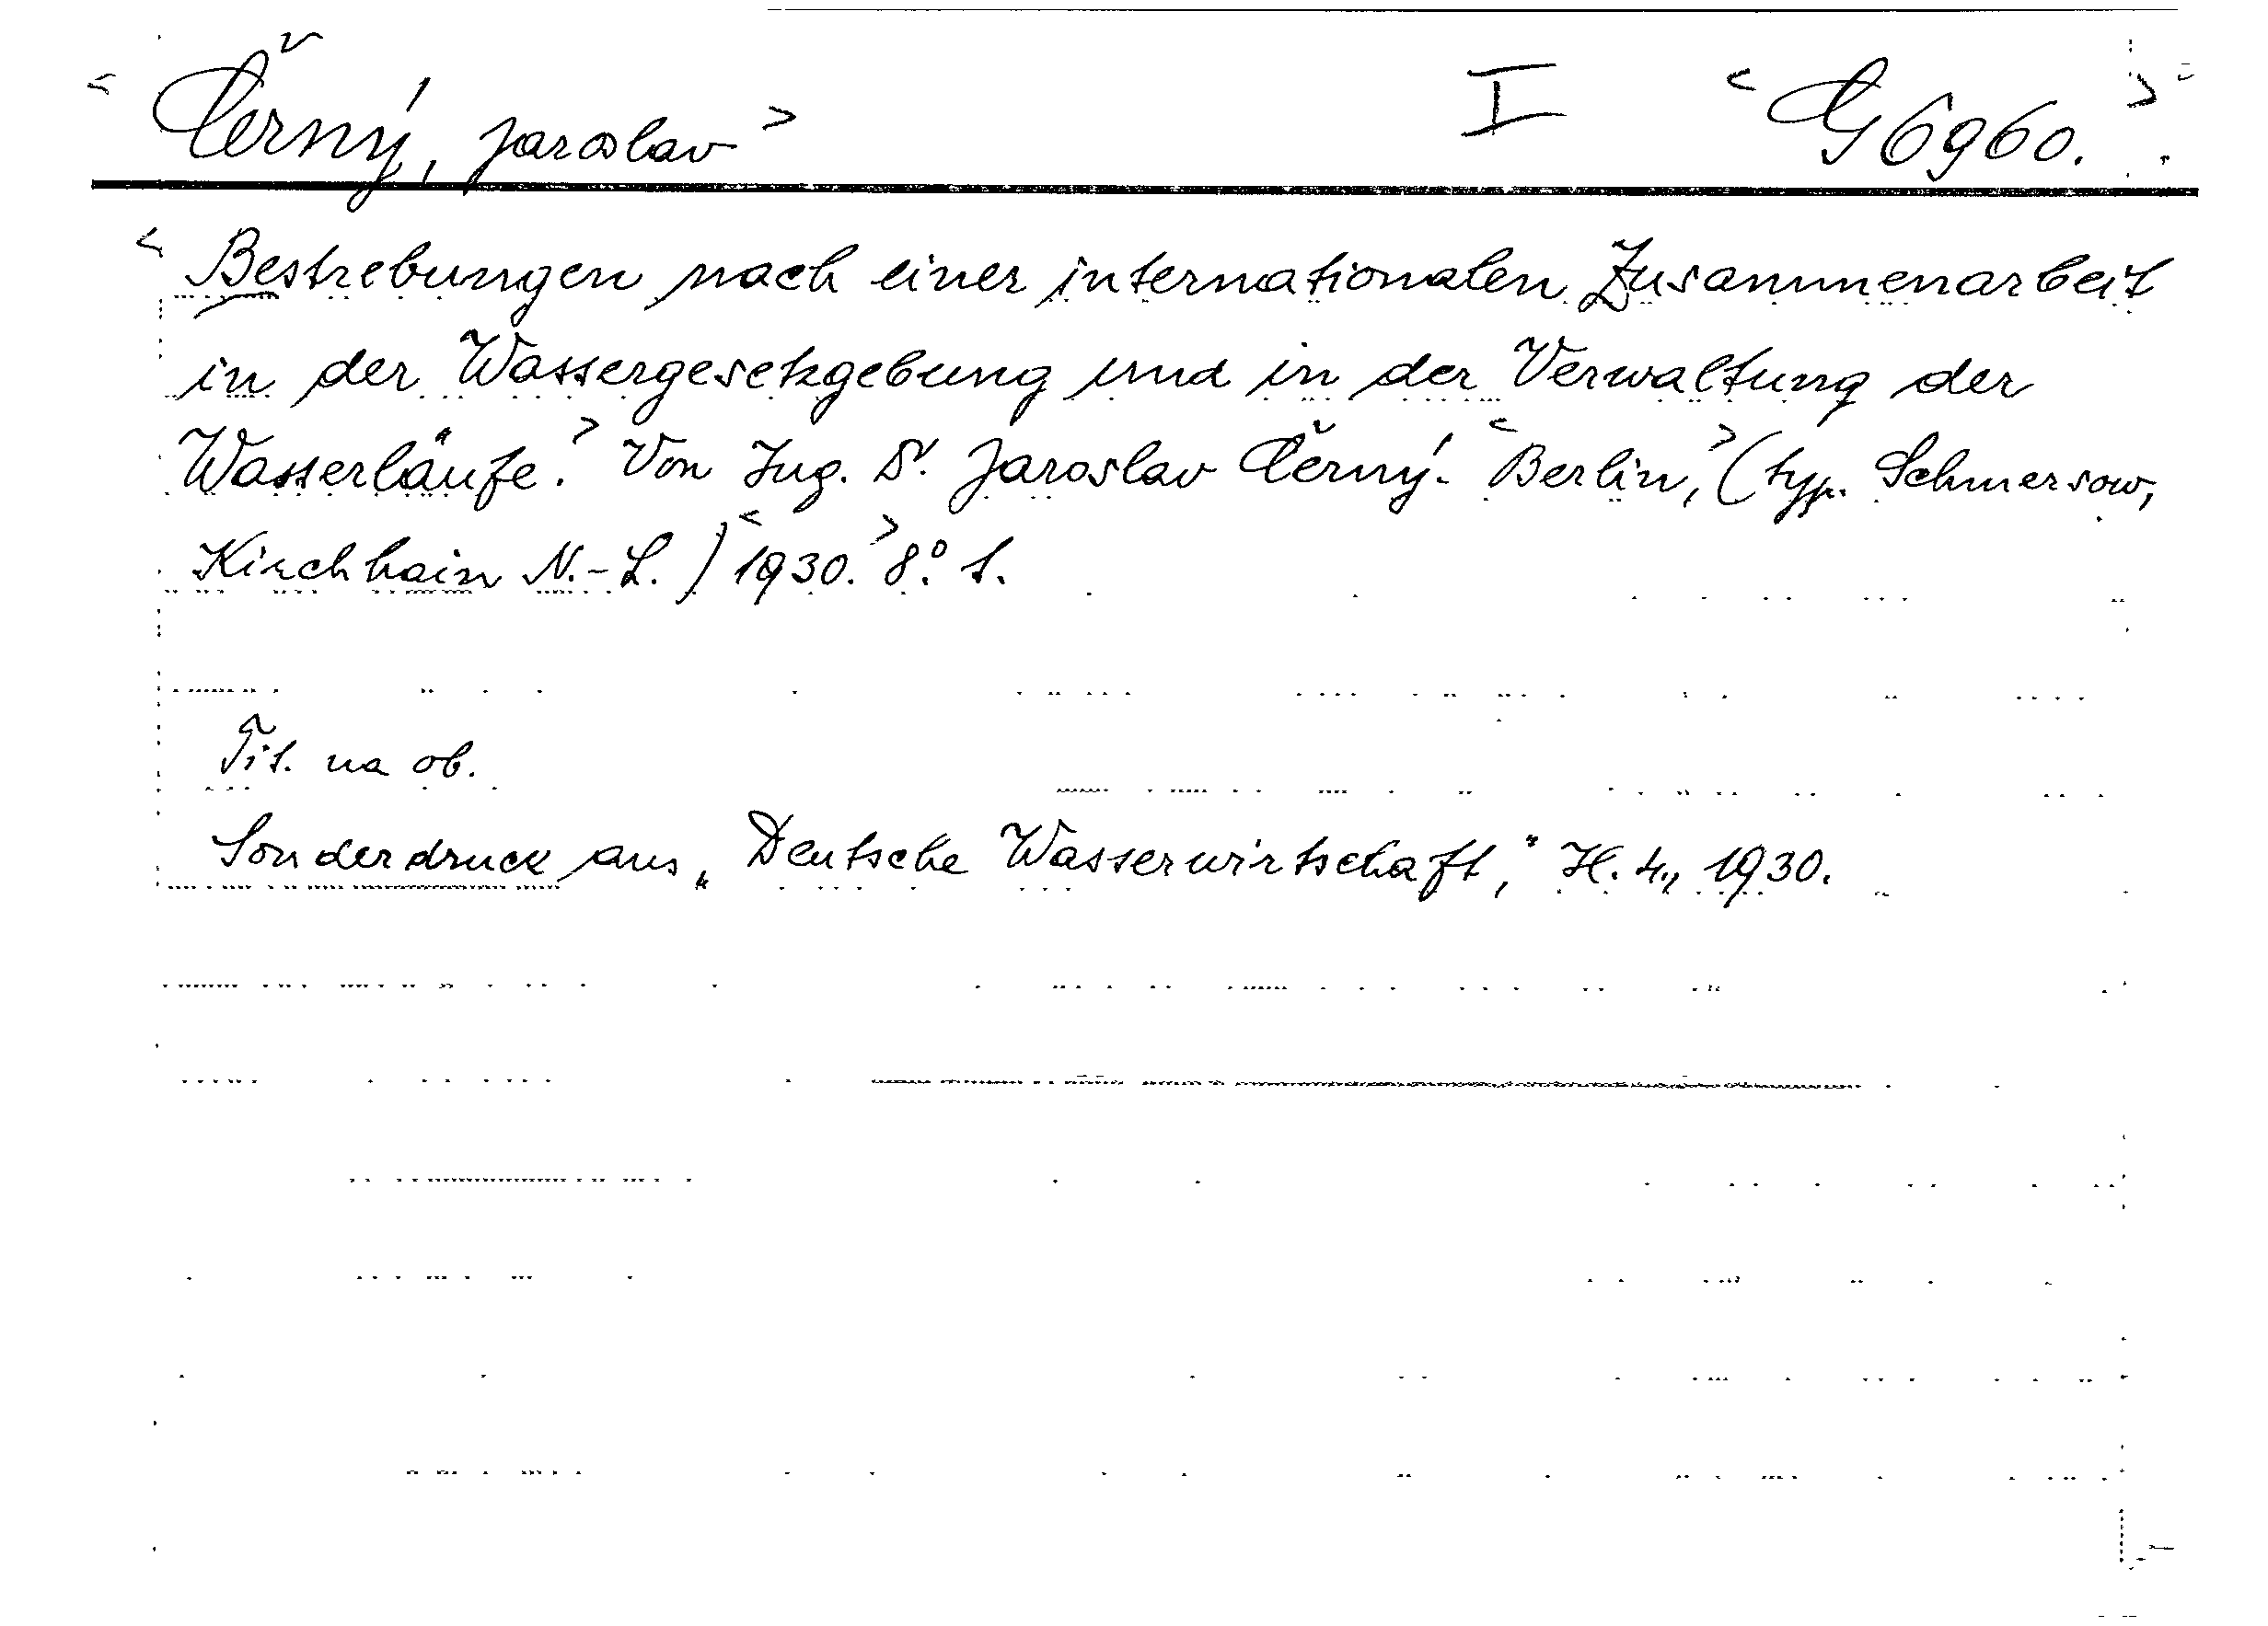 <Černý, Jaroslav> I <G 6960.>
<Bestrebungen nach einer internationalen Zusammenarbeit
in der Wassergesetzgebung und in der Verwaltung der
Wasserläufe.> Von Ing. Dr. Jaroslav Černý. <Berlin,> (typ. Schmersow,
Kirchhain N.-L.) <1930.> 8°. 1.
Tit. na ob.
Sonderdruck aus „Deutsche Wasserwirtschaft," H. 4., 1930.